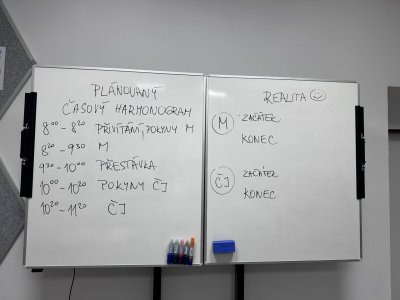 PLÁNOVANÝ
ČASOVÝ HARMONOGRAM
8⁰⁰ - 8²⁰ PŘIVÍTÁNÍ, POKYNY M
8²⁰ - 9³⁰ M
9³⁰ - 10⁰⁰ PŘESTÁVKA
10⁰⁰ - 10²⁰ POKYNY ČJ
10²⁰ - 11²⁰ ČJ
REALITA ☺
M ZAČÁTEK
KONEC
ČJ ZAČÁTEK
KONEC